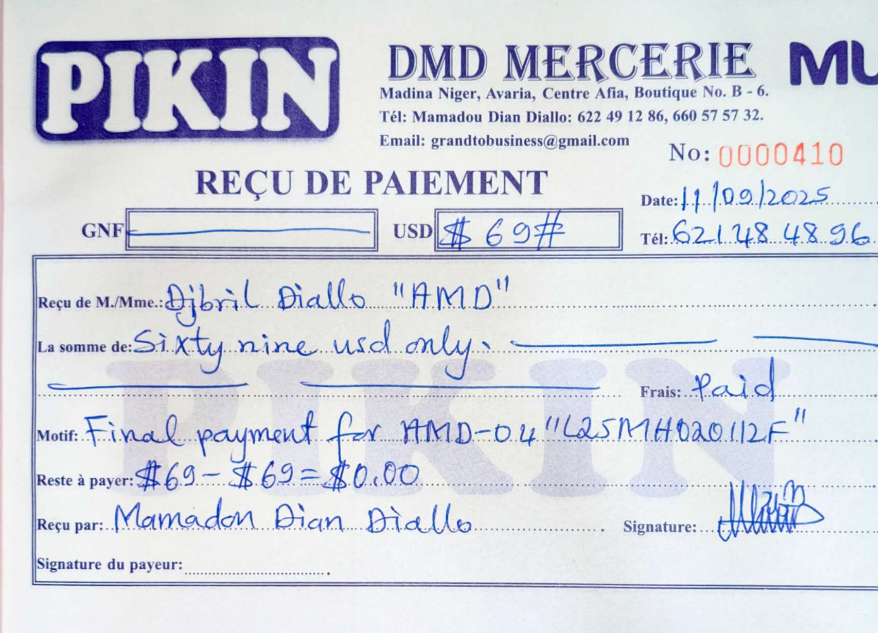 PIKIN
DMD MERCERIE MU
Madina Niger, Avaria, Centre Afia, Boutique No. B - 6.
Tél: Mamadou Dian Diallo: 622 49 12 86, 660 57 57 32.
Email: grandtobusiness@gmail.com
No: 0000410
REÇU DE PAIEMENT
Date: 11/09/2025
GNF USD $ 69# Tél: 621 48 48 96
Reçu de M./Mme.: Djbril Diallo "AMD"
La somme de: Sixty nine usd only.
Frais: Paid
Motif: Final payment for AMD-04 "L25MH020112F"
Reste à payer: $69 - $69 = $0.00
Reçu par: Mamadou Dian Diallo Signature:
Signature du payeur:
PIKIN